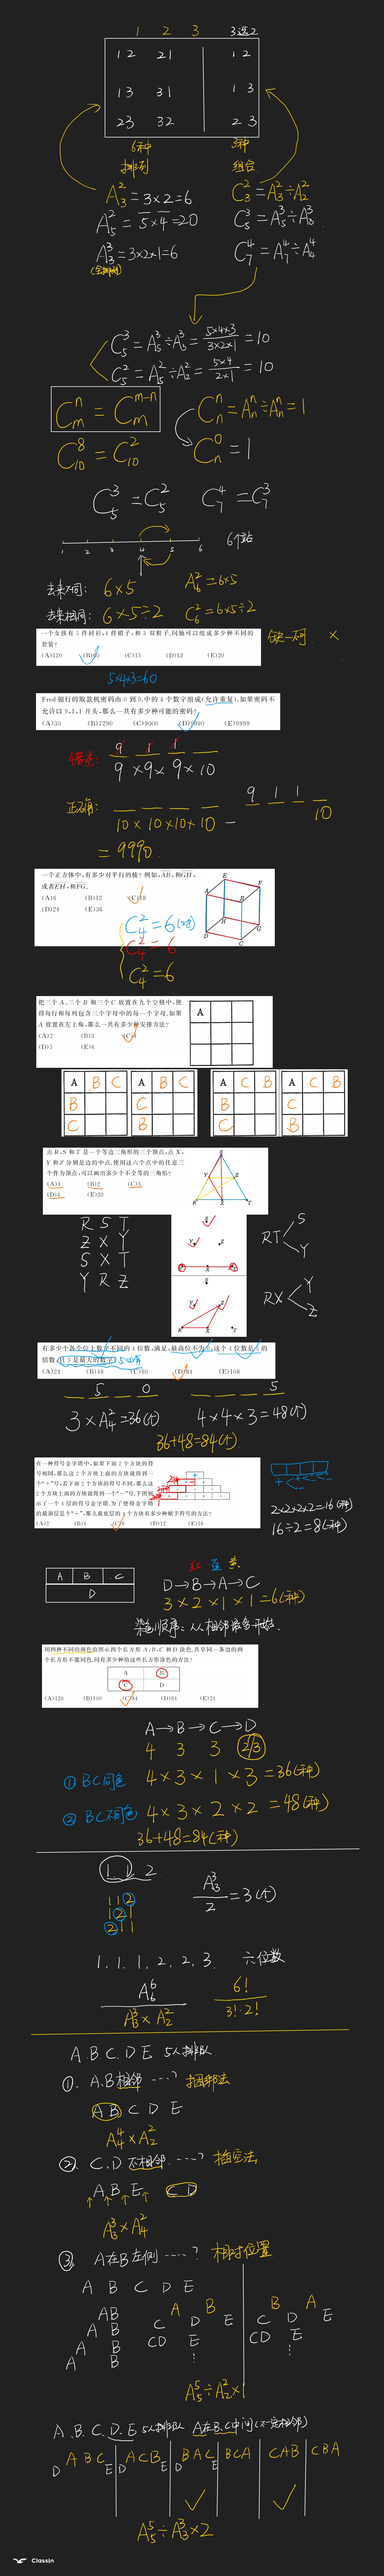 1 2 3 3选2
1 2 2 1 1 2
1 3 3 1 1 3
2 3 3 2 2 3
6种 3种
排列 组合
A₃²=3×2=6 C₃²=A₃²÷A₂²
A₅²=5×4=20 C₅³=A₅³÷A₃³
A₃³=3×2×1=6 C₇⁴=A₇⁴÷A₄⁴
C₅³=A₅³÷A₃³=5×4×3/3×2×1=10
C₅²=A₅²÷A₂²=5×4/2×1=10
Cₘⁿ=Cₘᵐ⁻ⁿ Cₙⁿ=Aₙⁿ÷Aₙⁿ=1
C₁₀⁸=C₁₀² Cₙ⁰=1
C₅³=C₅² C₇⁴=C₇³
1 2 3 4 5 6 6个站
去来不同: 6×5 A₆²=6×5
去来相同: 6×5÷2 C₆²=6×5÷2
一个女孩有 5 件衬衫,4 件裙子,和 3 双鞋子,问她可以组成多少种不同的
套装?
(A)120 (B)60 (C)15 (D)12 (E)20
缺一不可 ×
5×4×3=60
Fred 银行的取款机密码由 0 到 9,中的 4 个数字组成(允许重复),如果密码不
允许以 9,1,1 开头,那么一共有多少种可能的密码?
(A)30 (B)7290 (C)9000 (D)9990 (E)9999
错误: 9 1 1
9×9×9×10
正确: 9 1 1
10×10×10×10 - 10
=9990
一个正方体中,有多少对平行的棱? 例如,AB,和GH,
或者EH,和FG.
(A)6 (B)12 (C)18
(D)24 (E)36
E F A B H D C G
C₄²=6(对)
C₄²=6
C₄²=6
把三个 A、三个 B 和三个 C 放置在九个空格中,使
得每行和每列包含三个字母中的每一个字母,如果
A 放置在左上角,那么一共有多少种安排方法?
(A)2 (B)3 (C)4
(D)5 (E)6
A
A B C A B C A C B A C B
B C B C
C B C B
点 R,S 和 T 是一个等边三角形的三个顶点,点 X,
Y 和 Z 分别是边的中点,使用这六个点中的任意三
个作为顶点,可以画出多少个不全等的三角形?
(A)1 (B)2 (C)3
(D)4 (E)20
R S T
Z X Y
S X T
Y R Z
RT S Y
RX Y Z
有多少个各个位上数字不同的 4 位数,满足,最高位不为 0,这个 4 位数是 5 的
倍数,且 5 是最大的数字?
(A)24 (B)48 (C)60 (D)84 (E)108
5 0 5
3×A₄²=36(个) 4×4×3=48(个)
36+48=84(个)
在一种符号金字塔中,如果下面 2 个方块的符
号相同,那么这 2 个方块上面的方块就得到一
个"+";若下面 2 个方块的符号不同,那么这
2 个方块上面的方块得到一个"-",下图展
示了一个 4 层的符号金字塔,为了使得金字塔
的最顶层是个"+",那么最底层的 4 个方块有多少种赋予符号的方法?
(A)2 (B)4 (C)8 (D)12 (E)16
2×2×2×2=16(种)
16÷2=8(种)
A B C
D
红 蓝 黄
D→B→A→C
3×2×1×1=6(种)
染色顺序:从相邻最多开始.
用四种不同的颜色给图示四个长方形 A,B,C 和 D 涂色,共享同一条边的两
个长方形不能同色,问有多少种给这些长方形涂色的方法?
A B
C D
(A)120 (B)100 (C)84 (D)64 (E)24
A→B→C→D
4 3 3 2/3
① BC同色 4×3×1×3=36(种)
② BC不同色 4×3×2×2=48(种)
36+48=84(种)
1 1 2
1 1 2
1 2 1
2 1 1
A₃³/2=3(个)
1. 1. 1. 2. 2. 3. 六位数
A₆⁶/A₃³×A₂² 6!/3!·2!
A.B.C.D E 5人排队
①. A.B相邻 ……? 捆绑法
AB C D E
A₄⁴×A₂²
②. C.D 不相邻 ……? 插空法
A B E C D
A₃³×A₄²
③. A在B左侧 ……? 相对位置
A B C D E
AB
A B
A B
A B
A B
C D E
CD E
B A
C D E
CD E
A₅⁵÷A₂²×1
A.B.C.D.E 5人排队 A在B.C中间(不一定相邻)
D ABC E D ACB E D BAC E BCA CAB CBA
A₅⁵÷A₃³×2
ClassIn